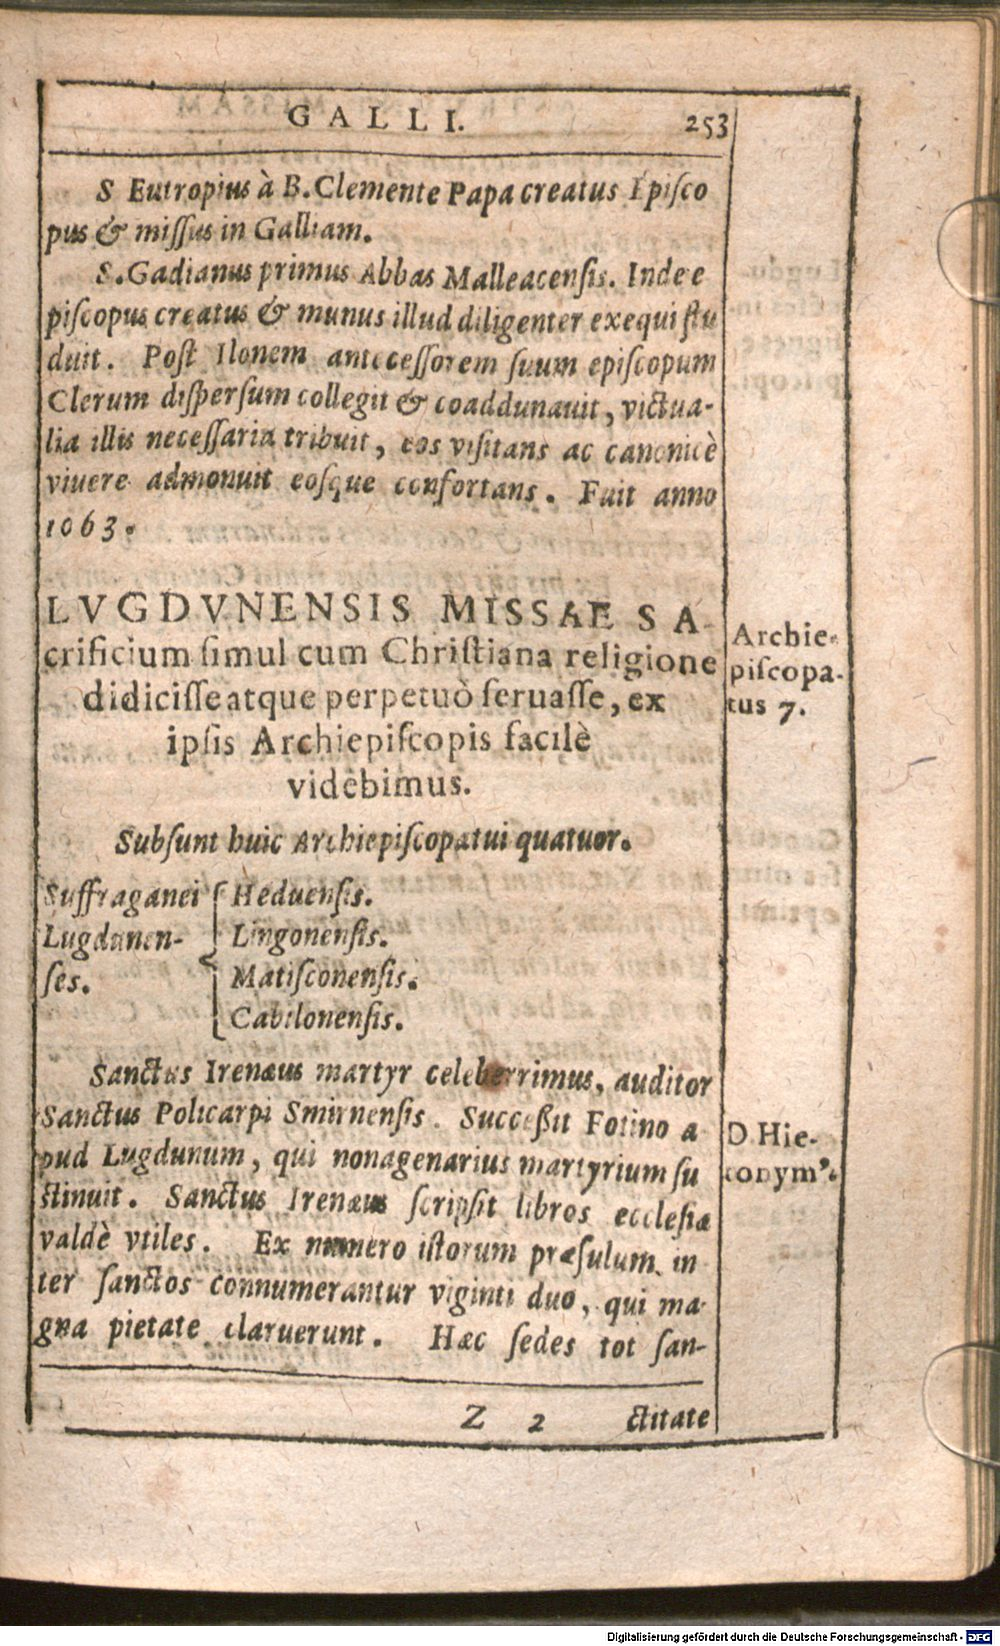 GALLI. 253
S Eutropius à B. Clemente Papa creatus Episco
pus & missus in Galliam.
S. Gadianus primus Abbas Malleacensis. Inde e
piscopus creatus & munus illud diligenter exequi stu
duit. Post Ilonem antecessorem suum episcopum
Clerum dispersum collegit & coaddunauit, victua-
lia illis necessaria tribuit, eos visitans ac canonicè
viuere admonuit eosque confortans. Fuit anno
1063.
LVGDVNENSIS MISSAE SA-
crificium simul cum Christiana religione
didicisse atque perpetuò seruasse, ex
ipsis Archiepiscopis facilè
videbimus.
Archie-
piscopa-
tus 7.
Subsunt huic Archiepiscopatui quatuor.
Suffraganei
Lugdunen-
ses.
Heduensis.
Lingonensis.
Matisconensis.
Cabilonensis.
Sanctus Irenæus martyr celeberrimus, auditor
Sanctus Policarpi Smirnensis. Successit Fotino a
pud Lugdunum, qui nonagenarius martyrium su
stinuit. Sanctus Irenæus scripsit libros ecclesiæ
valdè vtiles. Ex numero istorum præsulum in
ter sanctos connumerantur viginti duo, qui ma-
gna pietate claruerunt. Hæc sedes tot san-
D Hie-
ronymꝰ.
Z 2 ctitate
Digitalisierung gefördert durch die Deutsche Forschungsgemeinschaft - DFG